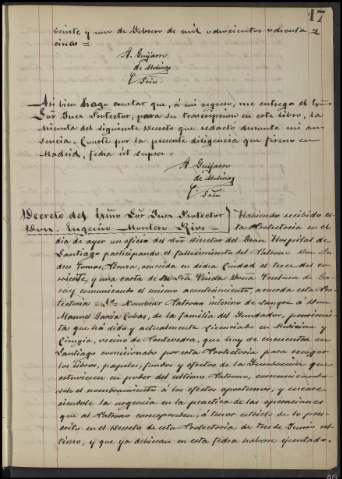 17
veinte y uno de Febrero de mil ochocientos ochenta y
cinco =
A. Guijarro
de Molina
Srio.
Asi bien hago constar que, á mi regreso, me entrega el
Sor. Juez Protector, para su transcripcion en este libro, la
minuta del siguiente Decreto que redactó durante mi au-
sencia. Conste por la presente diligencia que firmo en
Madrid, fecha ut supra.
A. Guijarro
de Molina
Srio.
Decreto del Excmo Sor. Juez Protector
Don Eugenio Montero Rios
Habiendo recibido es-
ta Protectoria en el
dia de ayer un oficio del Director del Gran Hospital de
Santiago participando el fallecimiento del Patrono Don
Tomas, ocurrido en dicha Ciudad el doce del co-
rriente, y una carta de la Viuda Doña de
comunicando el mismo acontecimiento, acuerda esta Pro-
tectoria = Nombrar Patrono interino de á Don
Manuel Garcia de la familia del fundador,
que ha sido y actualmente Licenciado en Medicina y
Cirugia, vecino de Pontevedra, que hoy se encuentra en
Santiago comisionado por esta Protectoria para recoger
los libros, papeles, fondos y efectos de la fundacion que
estuviesen en poder del ultimo Patrono, comunicando-
sele el nombramiento á los efectos oportunos, y encare-
ciendole la urgencia en la practica de las operaciones
que al Patrono corresponden, á tenor de lo pres-
crito en el Decreto de esta Protectoria de trece de Junio ul-
timo, y que ya debieran en esta fecha haberse ejecutado.